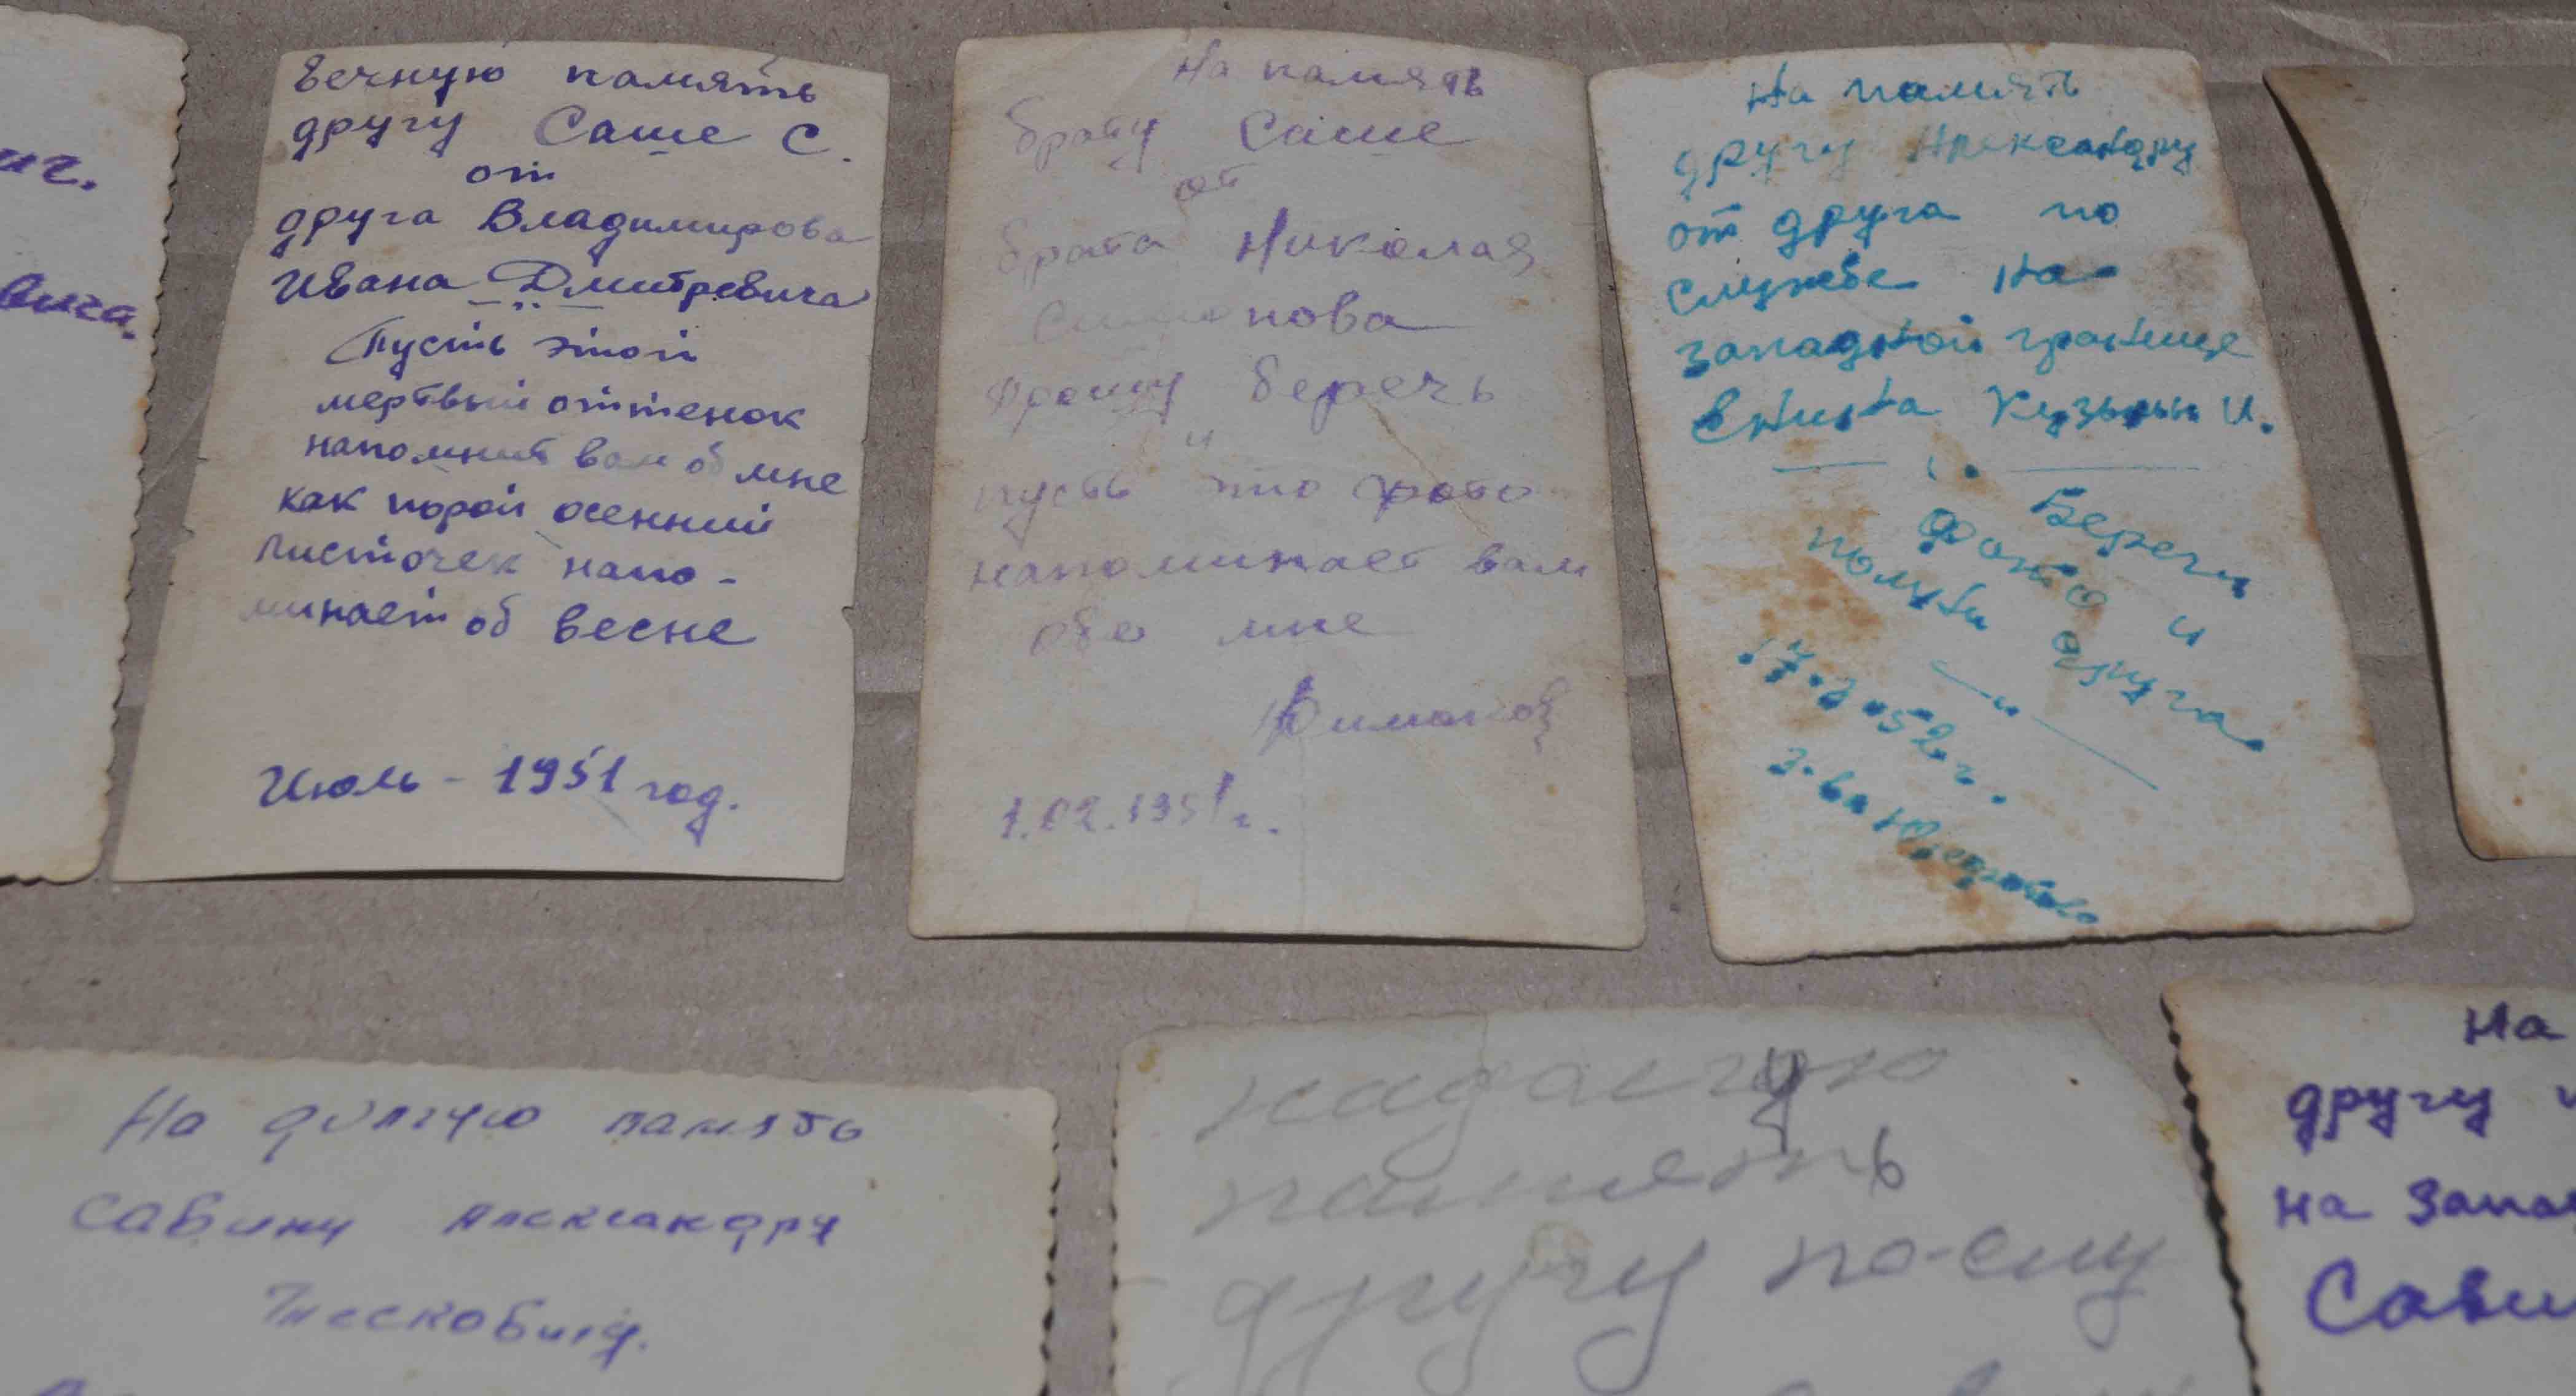 иг.
вича.
Вечную память
другу Саше С.
от
друга Владимирова
Ивана Дмитревича
Пусть этой
мертвый оттенок
напомнит вам об мне
как порой осенний
листочек напо-
минает об весне
Июль - 1951 год.
На память
брату Саше
от
брата Николая
нова
Прошу беречь
и
пусть это фото
напоминает вам
обо мне
1.02.1951г.
На память
другу Александру
от друга по
службе на
западной границе
Кузьмы И.
Береги
фото и
помни друга.
17.3.52г.
На долгую память
Савину Александру
надолгую
память
другу по-слу
На
другу
на запа
Сави